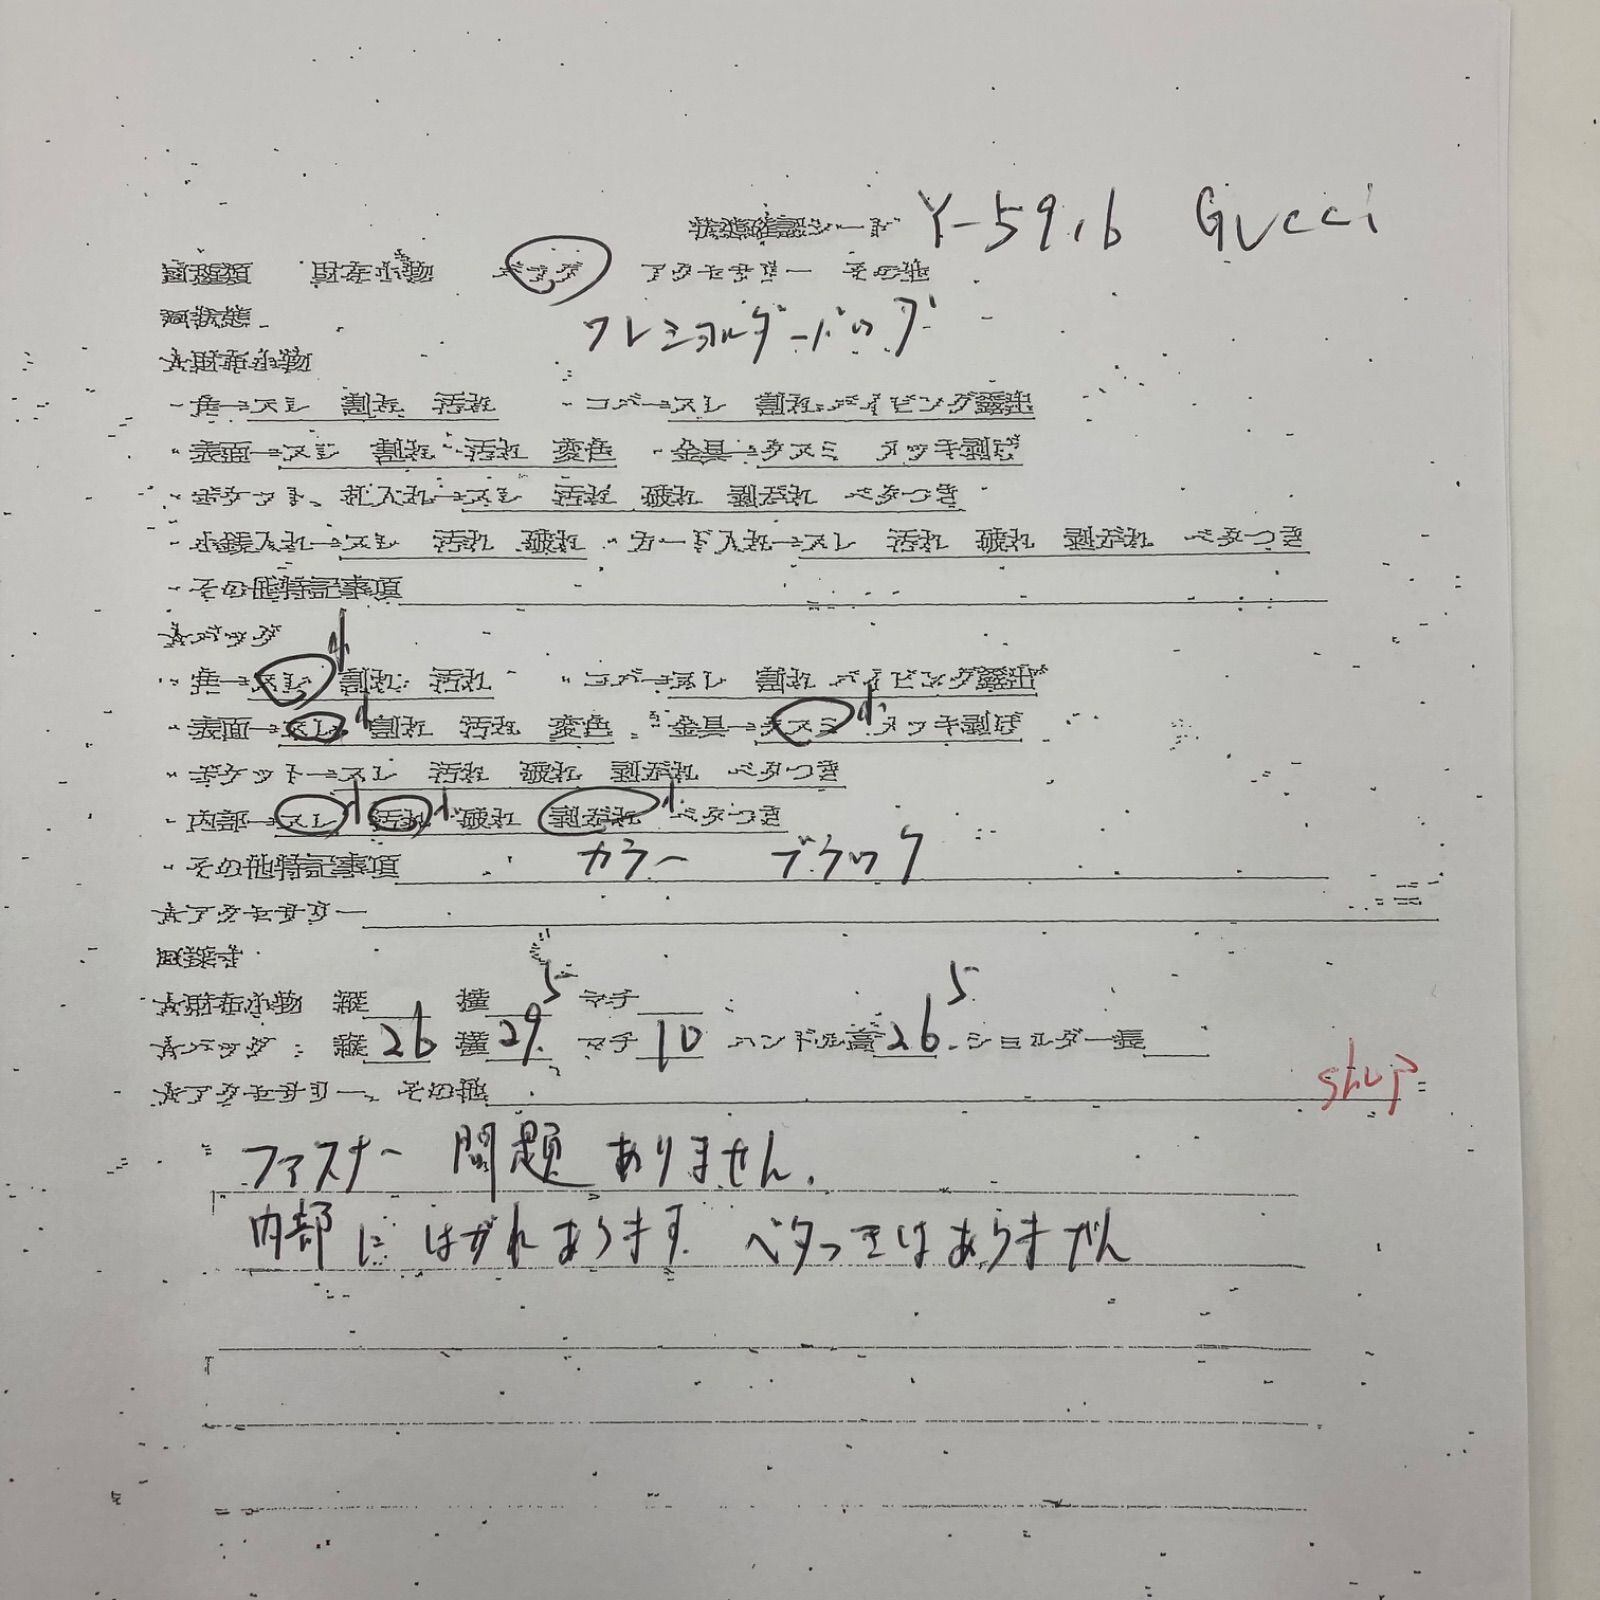 状態確認シート Y-5916 Gucci
財布小物 バッグ アクセサリー その他
状態 ワンショルダーバッグ
☆財布小物
・角=スレ 傷れ 汚れ ・コバ=スレ 傷れ パイピング露出
・表面=スレ 傷れ 汚れ 変色 ・金具=クスミ メッキ剥げ
・ポケット、札入れ=スレ 汚れ 破れ 剥がれ ベタつき
・小銭入れ=スレ 汚れ 破れ ・カード入れ=スレ 汚れ 破れ 剥がれ ベタつき
・その他特記事項
☆バッグ
・角=スレ 小 傷れ 汚れ ・コバ=スレ 傷れ パイピング露出
・表面=スレ 小 傷れ 汚れ 変色 ・金具=クスミ 小 メッキ剥げ
・ポケット=スレ 汚れ 破れ 剥がれ ベタつき
・内部=スレ 小 汚れ 小 破れ 剥がれ 小 ベタつき
・その他特記事項 カラー ブラック
☆アクセサリー
☆財布小物 縦 横 マチ
☆バッグ:縦 26 横 29.5 マチ 10 ハンドル高 26.5 ショルダー長
☆アクセサリー、その他 shup
ファスナー 問題 ありません.
内部に はがれ あります. ベタつきは ありません